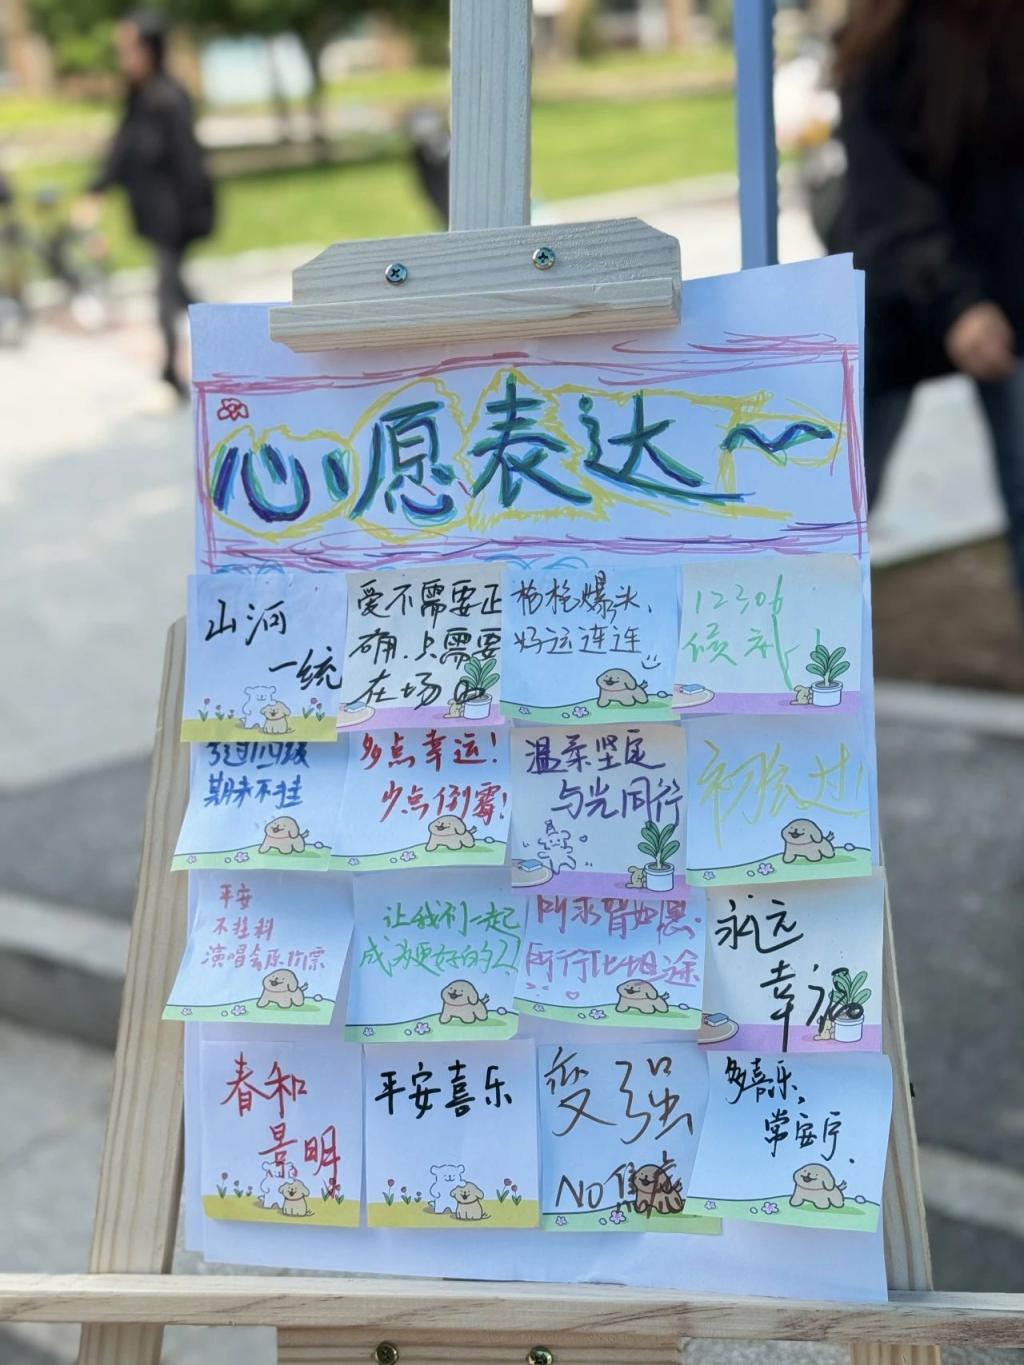 心愿表达~
山河
一统
爱不需要正
确.只需要
在场
枪枪爆头,
好运连连
12306
候补
过四级
期末不挂
多点幸运!
少点倒霉!
温柔坚定
与光同行
平安
不挂科
演唱会原价票
让我们一起
成为更好的
所求皆如愿.
所行化坦途
永远
幸福
春和
景明
平安喜乐
变强
NO焦虑
多喜乐,
常安宁.